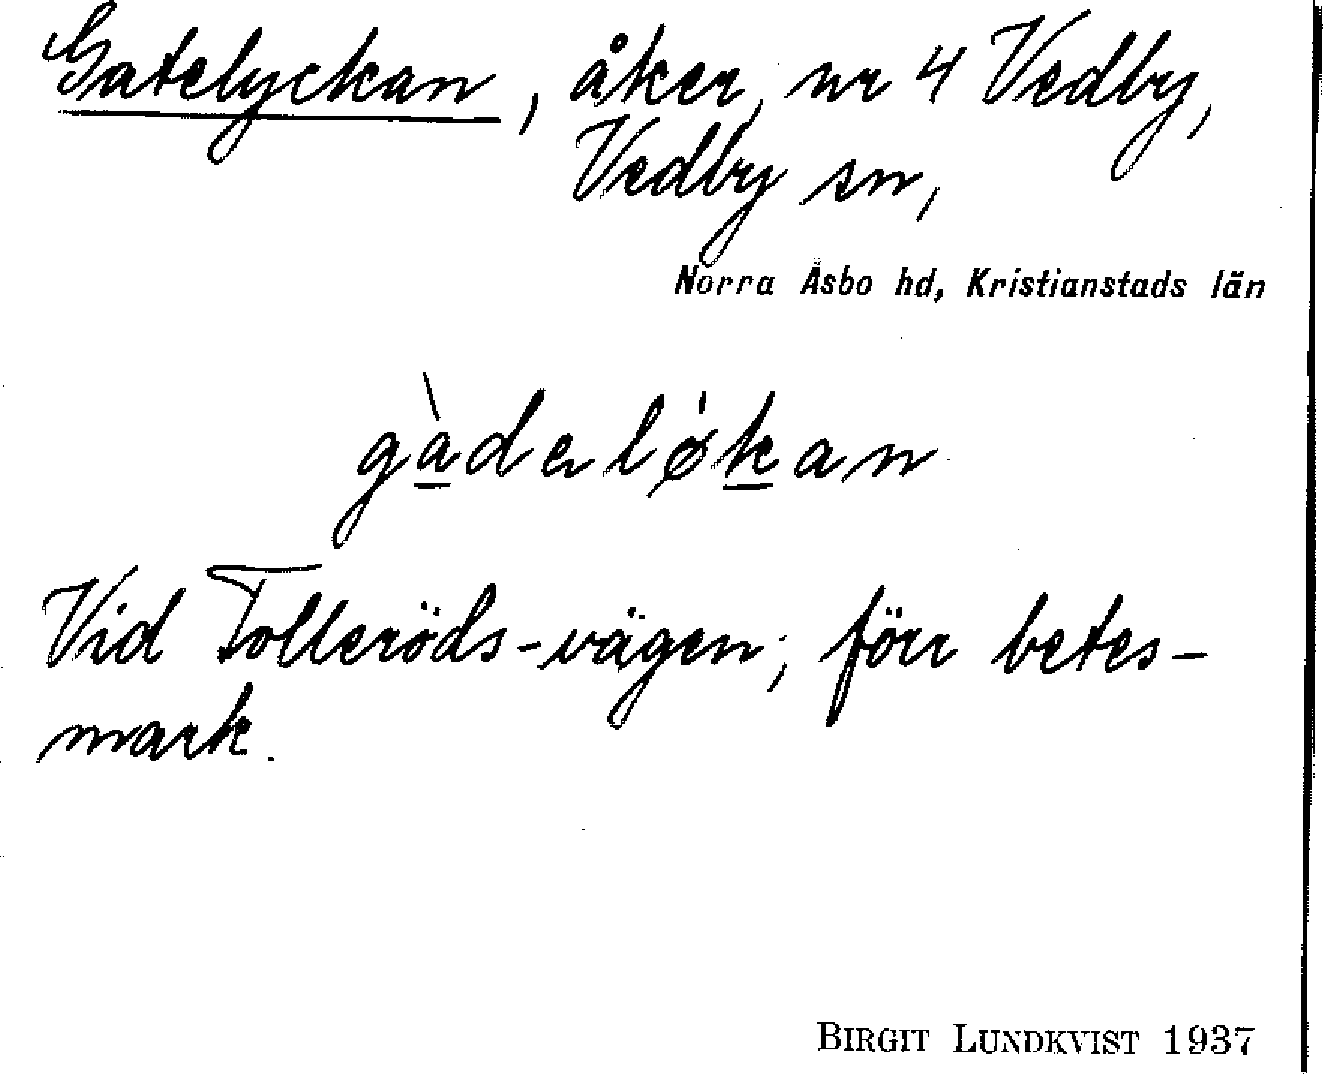 Gatelyckan, åker, nr 4 Vedby,
Vedby sn,
Norra Åsbo hd, Kristianstads län
gàdelǿkan
Vid Tolleröds-vägen; förr betes-
mark.
BIRGIT LUNDKVIST 1937